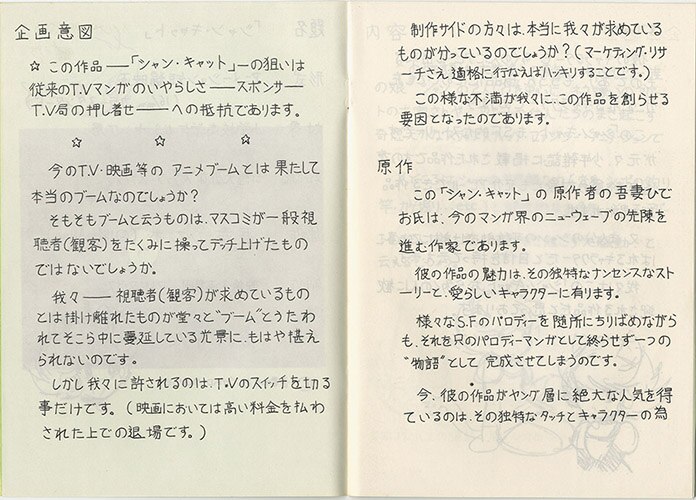 企画意図
☆ この作品 ——「シャン・キャット」—の狙いは
従来のT.Vマンガのいやらしさ——スポンサー
T.V局の押し着せ—— への抵抗であります。
☆ ☆ ☆
今のT.V・映画等の アニメブームとは 果たして
本当のブームなのでしょうか？
そもそもブームと云うものは、マスコミが一般視
聴者(観客)をたくみに操ってデッチ上げたもの
ではないでしょうか。
我々—— 視聴者(観客)が求めているもの
とは掛け離れたものが堂々と“ブーム”とうたわ
れてそこら中に蔓延している光景に、もはや堪え
られないのです。
しかし我々に許されるのは、T.Vのスイッチを切る
事だけです。(映画においては高い料金を払わ
された上での退場です。)
制作サイドの方々は、本当に我々が求めている
ものが分っているのでしょうか？(マーケティング・リサ
ーチさえ適格に行なえばハッキリすることです。)
この様な不満が我々に、この作品を創らせる
要因となったのであります。
原作
この「シャン・キャット」の 原作者の吾妻ひで
お氏は、今のマンガ界のニューウェーブの先陣を
進む作家であります。
彼の作品の魅力は、その独特なナンセンスなスト
ーリーと、愛らしいキャラクターに有ります。
様々なS.Fのパロディーを随所にちりばめながら
も、それを只のパロディーマンガとして終らせず一つの
“物語”として 完成させてしまうのです。
今、彼の作品がヤング層に絶大な人気を得
ているのは、その独特なタッチとキャラクターの為